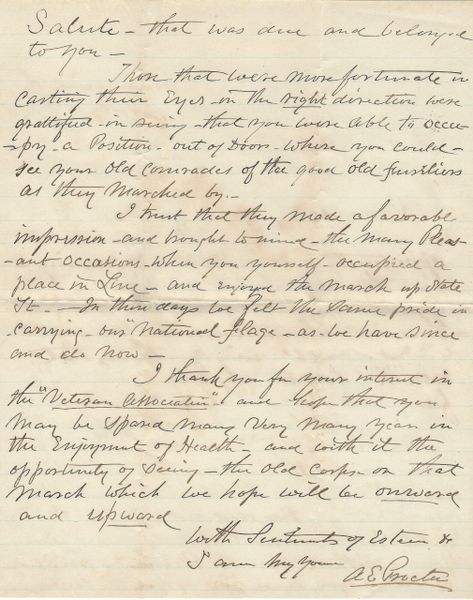 Salute - that was due and belonged
to you -
Those that were more fortunate in
casting their Eyes - in the right direction were
gratified - in seeing - that you were able to occu-
-py - a Position - out of Doors - where you could -
see your old comrades of the good old fusiliers
as they Marched by. -
I trust that they made a favorable
impression - and brought to mind - the many Pleas-
-ant occasions - when you yourself - occupied a
place in Line - and enjoyed the march up State
St. - In those days we felt the same pride in
carrying - our "National flage - as - we have since
and do now -
I thank you for your interest in
the "Veteran Association" and hope that you
may be spared many very many years in
the Enjoyment of Health, and with it the
opportunity of Seeing - the old corps on that
March which we hope will be onward
and upward
With Sentiments of Esteem &
I am My Yours
A.E. Proctor